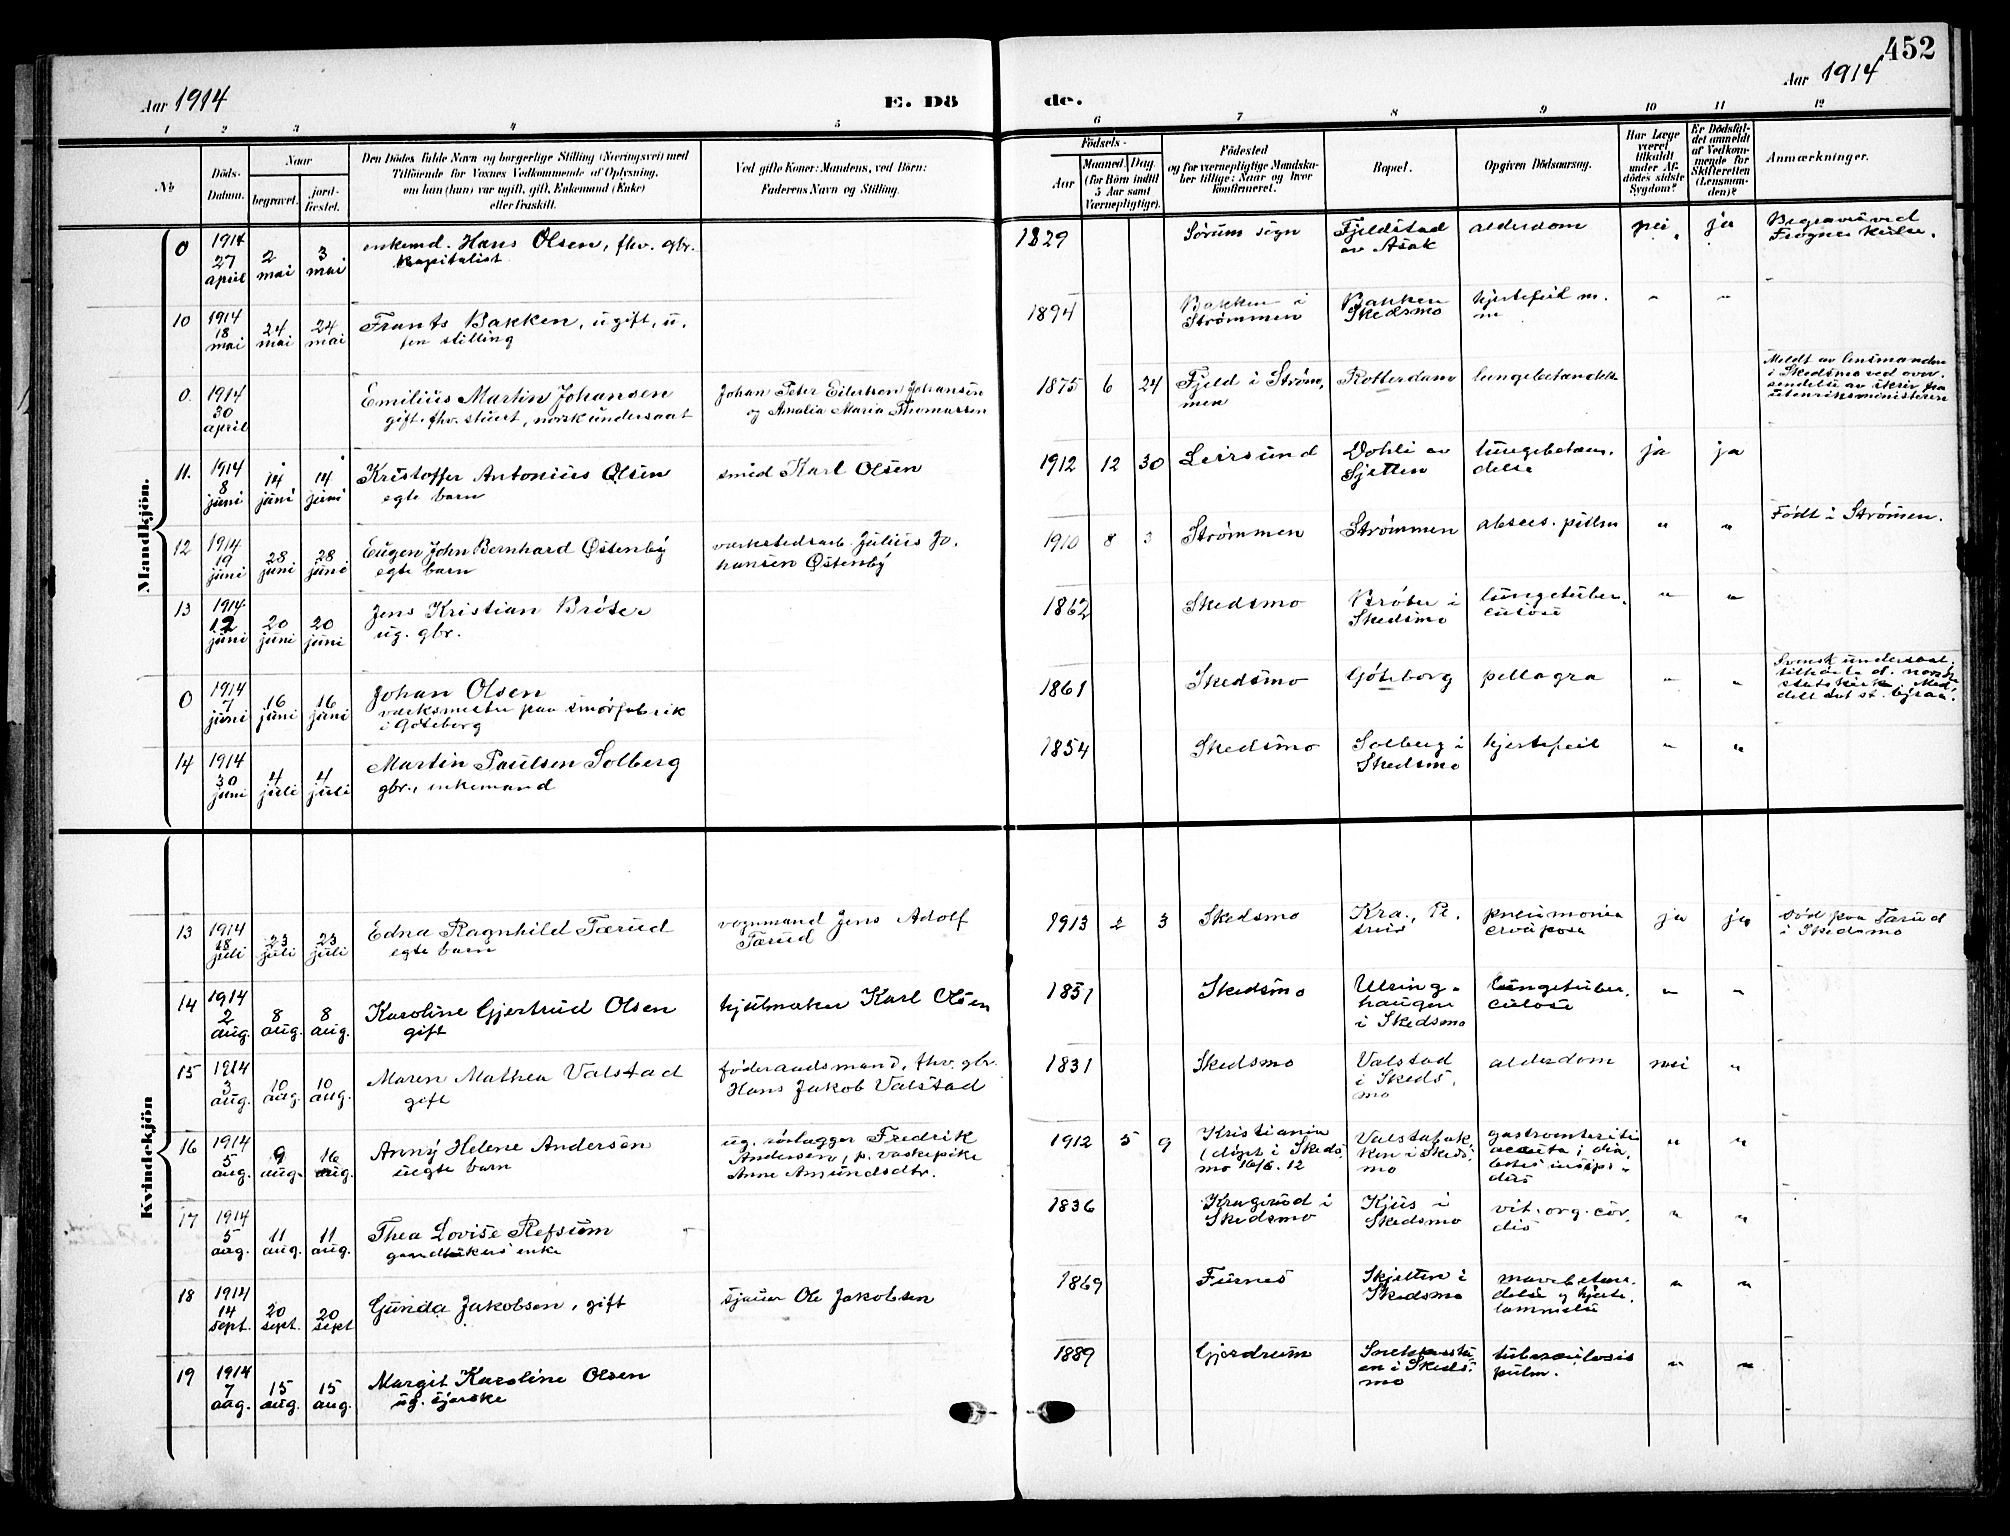 452
Aar 1914
E. Dö
de.
Aar 1914
1 2 3 4 5 6 7 8 9 10 11 12
No
Döds-
Datum.
Naar
begravet.
jord-
fæstet.
Den Dödes fulde Navn og borgerlige Stilling (Næringsvei) med
Tilföiende for Voxnes Vedkommende af Oplysning,
om han (hun) var ugift, gift, Enkemand (Enke)
eller fraskilt.
Ved gifte Koner: Mandens, ved Börn:
Faderens Navn og Stilling.
Födsels-
Aar
Maaned. Dag.
(for Börn indtil
5 Aar samt
Værnepligtige).
Födested
og for værnepligtige Mandska-
ber tillige: Naar og hvor
konfirmeret.
Bopæl.
Opgiven Dödsaarsag.
Har Læge
været
tilkaldt
under Af-
dödes sidste
Sygdom?
Er Dödsfal-
det anmeldt
af Vedkom-
mende for
Skifteretten
(Lensman-
den)?
Anmærkninger.
Mandkjön.
0
1914
27
april
2
mai
3
mai
enkemd. Hans Olsen, fhv. gbr.
kapitalist
1829
Sørum sogn
Fjeldstad
av Asak
alderdom
nei
ja
Begraves ved
Frogner kirke.
10
1914
18
mai
24
mai
24
mai
Frants Bakken, ugift, u-
fen stilling
1894
Bakken i
Strømmen
Bakken
Skedsmo
hjertefeil m.
m
"
"
0
1914
30
april
Emilius Martin Johansen
gift, fhv. stuert, norsk undersaat
Johan Peter Eilertsen Johansen
og Amalia Maria Thomassen
1875 6 24
Fjeld i Strøm-
men
Rotterdam
lungebetændelse
Meldt av lensmanden
i Skedsmo ved over-
sendelse av skriv fra
utenriksministeren
11.
1914
8
juni
14
juni
14
juni
Kristoffer Antonius Olsen
egte barn
smed Karl Olsen
1912 12 30
Leirsund
Vohli av
Sjetten
lungebetæn-
delse
ja
ja
12
1914
19
juni
28
juni
28
juni
Eugen John Bernhard Østenby
egte barn
verkstedsarb. Julius Jo-
hansen Østenby
1910 8 3
Strømmen
Strømmen
absces. pulm
"
"
Født i Strømen.
13
1914
12
juni
20
juni
20
juni
Jens Kristian Brøter
ug. gbr.
1862
Skedsmo
Brøter i
Skedsmo
lungetuber-
culose
"
"
0
1914
7
juni
16
juni
16
juni
Johan Olsen
verksmester paa smørfabrik
i Gøteborg
1861
Skedsmo
Gøteborg
pellagra
"
"
Svensk undersaat,
tilhørte d. norske
statskirk. Med-
delt det st. byraa.
14
1914
30
juni
4
juli
4
juli
Martin Paulsen Solberg
gbr., enkemand
1854
Skedsmo
Solberg i
Skedsmo
hjertefeil
"
"
Kvindekjön
13
1914
18
juli
23
juli
23
juli
Edna Ragnhild Tærud
egte barn
vognmand Jens Adolf
Tærud
1913 2 3
Skedsmo
Kra., Pe.
pneumonia
ja
ja
død paa Tærud
i Skedsmo
14
1914
2
aug.
8
aug.
8
aug.
Karoline Gjertrud Olsen
gift
hjulmaker Karl Olsen
1851
Skedsmo
haugen
i Skedsmo
lungetuber-
culose
"
"
15
1914
3
aug.
10
aug.
10
aug.
Maren Mathea Valstad
gift
føderaadsmand, fhv. gbr.
Hans Jakob Valstad
1831
Skedsmo
Valstad
i Skeds-
mo
alderdom
nei
"
16
1914
5
aug.
9
aug.
16
aug.
Anny Helene Andersen
uegte barn
ug. rørlægger Fredrik
Andersen, p. vaskepike
Anne Amundsdtr.
1912 5 9
Kristiania
(døpt i Skeds-
mo 16/6. 12
Valstadbak-
ken i Skeds-
mo
gastroenteritis
acuta; dia-
betes insipi-
dus
"
"
17
1914
5
aug.
11
aug.
11
aug.
Thea Lovise Refsum
gaardbrukers enke
1836
Kragerud i
Skedsmo
Kjus i
Skedsmo
vit. org. cor-
dis
"
"
18
1914
14
sept.
20
sept.
20
sept
Gunda Jakobsen, gift
sjauer Ole Jakobsen
1869
Furnes
Skjetten i
Skedsmo
mavebetæn-
delse og hjerte-
lammelse
"
"
19
1914
7
aug.
15
aug.
15
aug.
Margit Karoline Olsen
ug. syerske
1889
Gjerdrum
en i Skeds-
mo
tuberculosis
pulm.
"
"